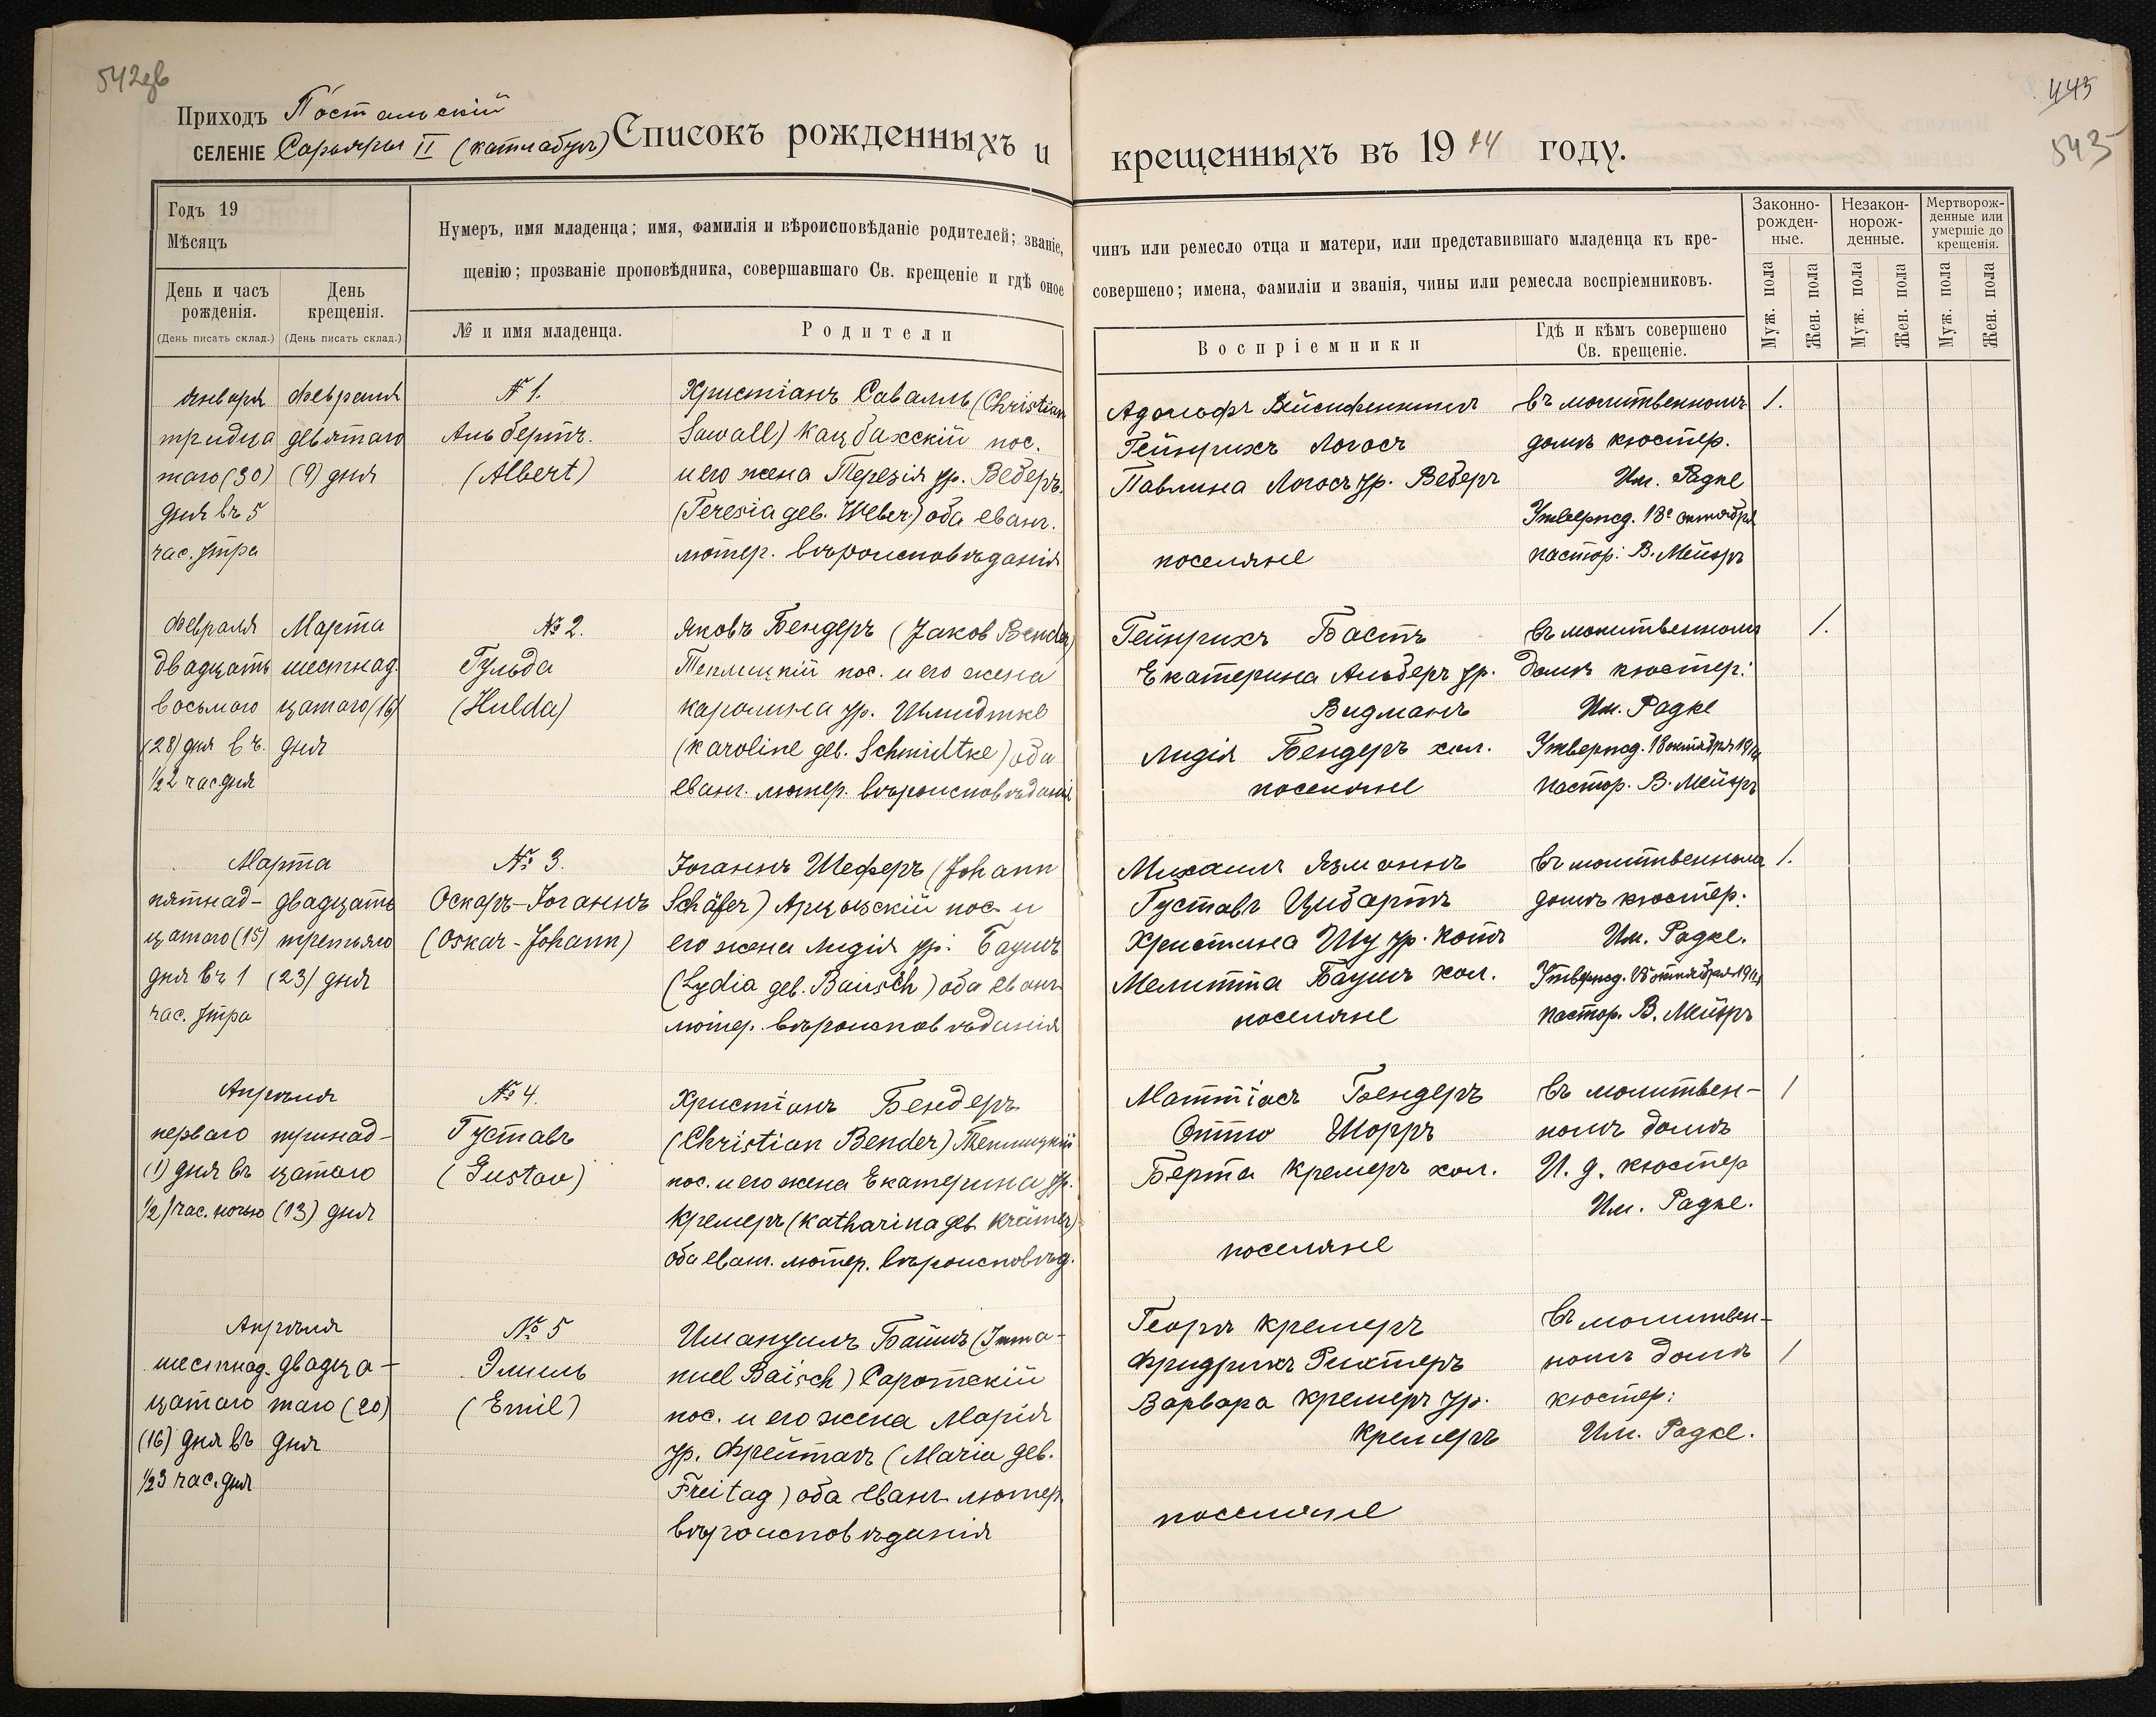 542об
443
543
Приходъ Постальскій
СЕЛЕНІЕ Сарьяры II (катлабугъ)
Списокъ рожденныхъ и крещенныхъ въ 1914 году.
Годъ 19
Мѣсяцъ
День и часъ рожденія.
(День писать склад.)
День крещенія.
(День писать склад.)
Нумеръ, имя младенца; имя, фамилія и вѣроисповѣданіе родителей; званіе, чинъ или ремесло отца и матери, или представившаго младенца къ кре-
щенію; прозваніе проповѣдника, совершавшаго Св. крещеніе и гдѣ оное совершено; имена, фамиліи и званія, чины или ремесла воспріемниковъ.
№ и имя младенца.
Родители
Воспріемники
Гдѣ и кѣмъ совершено
Св. крещеніе.
Законно-
рожден-
ные.
Незакон-
норож-
денные.
Мертворож-
денные или
умершіе до
крещенія.
Муж. пола
Жен. пола
Муж. пола
Жен. пола
Муж. пола
Жен. пола
января
тридца
таго (30)
дня въ 5
час. утра
февраля
девятаго
(9) дня
№ 1.
Альбертъ.
(Albert)
Христіанъ Саваллъ (Christian
Sawall) Кацбахскій пос.
и его жена Терезія ур. Веберъ.
(Teresia geb. Weber) оба еванг.
лютер. вѣроисповѣданія
Адольфъ
Гейнрихъ Логосъ
Павлина Логосъ ур. Веберъ
поселяне
въ молитвенномъ
домѣ кюстер.
Им. Радке
Утвержд. 18е октября
пастор: В. Мейеръ
1.
февраля
двадцать
восьмого
(28) дня въ
½2 час дня
Марта
шестнад.
цатаго (16)
дня
№ 2.
Гульда
(Hulda)
Яковъ Бендеръ (Jakob Bender)
Теплицкій пос. и его жена
Каролина ур. Шмидтке
(Karoline geb. Schmidtke) оба
еванг. лютер. вѣроисповѣданія
Гейнрихъ Бастъ
Екатерина Альберъ ур.
Видманъ
Лидія Бендеръ хол.
поселяне
въ молитвенномъ
домѣ кюстер:
Им. Радке
Утвержд. 18 октября 1914
пастор. В. Мейеръ
1.
Марта
пятнад-
цатаго (15)
дня въ 1
час. утра
двадцать
третьяго
(23) дня
№ 3.
Оскаръ-Іоганнъ
(Oskar-Johann)
Іоганнъ Шеферъ (Johann
Schäfer) Арцызскій пос. и
его жена Лидія ур. Баушъ
(Lydia geb. Bausch) оба еванг
лютер. вѣроисповѣданія
Михаилъ Язманнъ
Густавъ Цибартъ
Христина Шу ур. Котъ
Мелитта Баушъ хол.
поселяне
въ молитвенномъ
домѣ кюстер.
Им. Радке.
Утвержд. 18 октября 1914
пастор. В. Мейеръ
1.
Апрѣля
перваго
(1) дня въ
½2) час. ночью
тринад-
цатаго
(13) дня
№ 4.
Густавъ
(Gustav)
Христіанъ Бендеръ
(Christian Bender) Теплицкій
пос. и его жена Екатерина ур.
Кремеръ (Katharina geb. Krämer)
оба еванг. лютер. вѣроисповѣд.
Маттіасъ Бендеръ
Отто Шорръ
Берта Кремеръ хол.
поселяне
въ молитвен-
номъ домѣ
И. д. кюстер
Им. Радке.
1
Апрѣля
шестнад.
цатаго
(16) дня въ
½3 час. дня
двадца-
таго (20)
дня
№ 5
Эмиль
(Emil)
Имануилъ Байшъ (Imma-
nuel Baisch) Саратскій
пос. и его жена Марія
ур. Фрейтагъ (Maria geb.
Freitag) оба еванг. лютер.
вѣроисповѣданія
Георгъ Кремеръ
Фридрихъ Рихтеръ
Варвара Кремеръ ур.
Кремеръ
поселяне
въ молитвен-
номъ домѣ
кюстер:
Им. Радке.
1